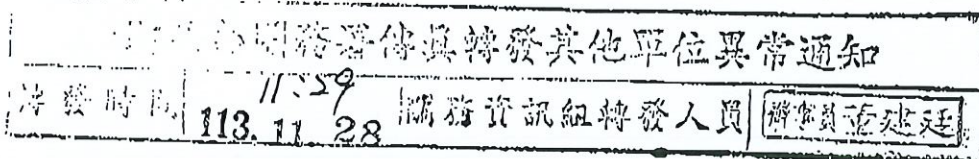 關務署傳真轉發其他單位異常通知
轉發時間 11:59 113.11.28 關務資訊組轉發人員 辦事員 建廷